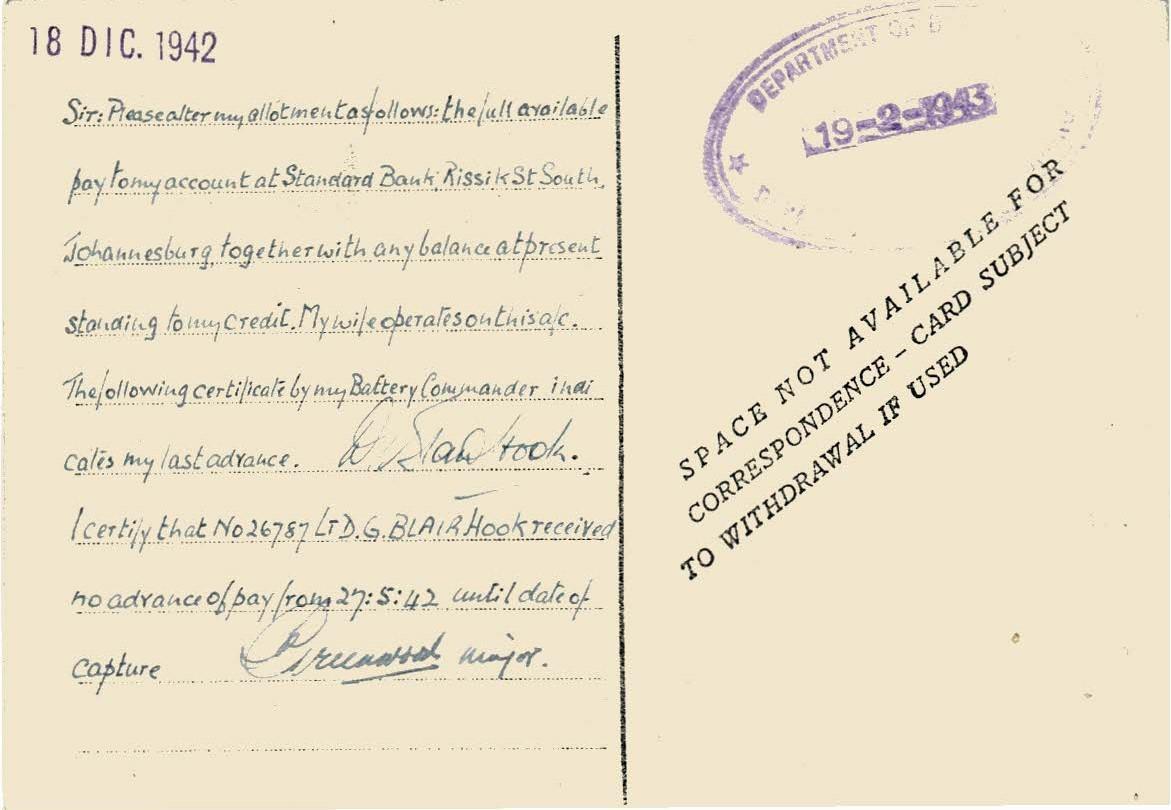 18 DIC. 1942
Sir: Please alter my allotment as follows: the full available
pay to my account at Standard Bank, Rissik St South,
Johannesburg, together with any balance at present
standing to my credit. My wife operates on this a/c.
The following certificate by my Battery Commander indi
cates my last advance. D. G. Blair Hook.
I certify that No 26787 Lt D. G. BLAIR HOOK received
no advance of pay from 27:5:42 until date of
capture Greenwood major.
DEPARTMENT OF D
19-2-1943
SPACE NOT AVAILABLE FOR
CORRESPONDENCE – CARD SUBJECT
TO WITHDRAWAL IF USED